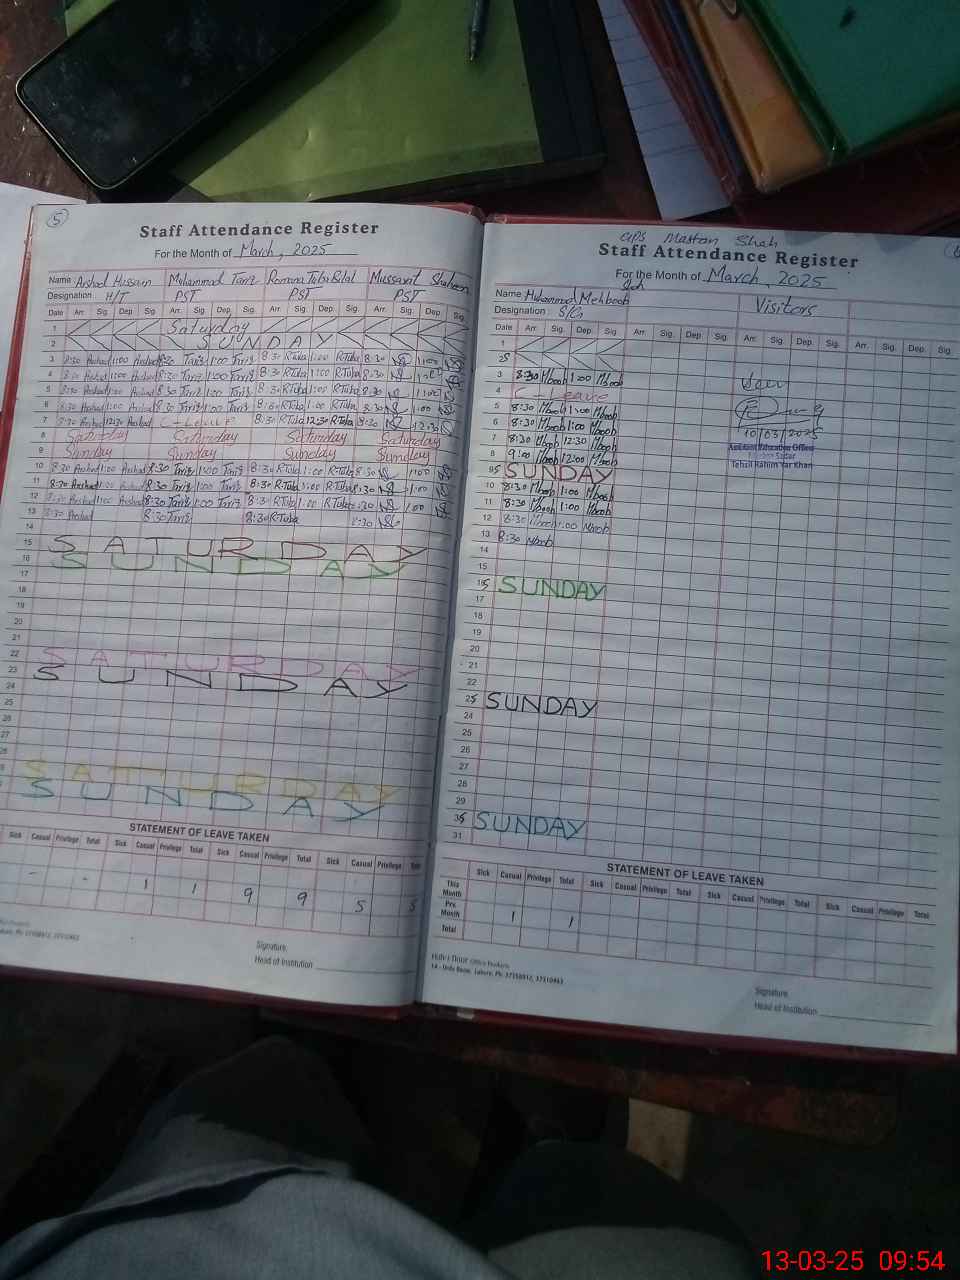 5
Staff Attendance Register
For the Month of March, 2025
Name Arshad Hussain Muhammad Tariq Romana Tuba Bilal Mussarit Shaheen
Designation H/T PST PST PST
Date Arr. Sig. Dep. Sig. Arr. Sig. Dep. Sig. Arr. Sig. Dep. Sig. Arr. Sig. Dep. Sig.
1 Saturday
2 SUNDAY
3 8:30 Arshad 1:00 Arshad 8:30 Tariq 1:00 Tariq 8:30 R.Tuba 1:00 R.Tuba 8:30 1:00
4 8:30 Arshad 1:00 Arshad 8:30 Tariq 1:00 Tariq 8:30 R.Tuba 1:00 R.Tuba 8:30 1:00
5 8:30 Arshad 1:00 Arshad 8:30 Tariq 1:00 Tariq 8:30 R.Tuba 1:00 R.Tuba 8:30 1:00
6 8:30 Arshad 1:00 Arshad 8:30 Tariq 1:00 Tariq 8:30 R.Tuba 1:00 R.Tuba 8:30 1:00
7 8:30 Arshad 12:30 Arshad C-Leave 8:30 R.Tuba 12:30 R.Tuba 8:30 12:30
8 Saturday Saturday Saturday Saturday
9 Sunday Sunday Sunday Sunday
10 8:30 Arshad 1:00 Arshad 8:30 Tariq 1:00 Tariq 8:30 R.Tuba 1:00 R.Tuba 8:30 1:00
11 8:30 Arshad 1:00 Arshad 8:30 Tariq 1:00 Tariq 8:30 R.Tuba 1:00 R.Tuba 8:30 1:00
12 8:30 Arshad 1:00 Arshad 8:30 Tariq 1:00 Tariq 8:30 R.Tuba 1:00 R.Tuba 8:30 1:00
13 8:30 Arshad 8:30 Tariq 8:30 R.Tuba 8:30
14
15 SATURDAY
16 SUNDAY
17
18
19
20
21
22 SATURDAY
23 SUNDAY
24
25
26
27
28
SATURDAY
SUNDAY
STATEMENT OF LEAVE TAKEN
Sick Casual Privilege Total Sick Casual Privilege Total Sick Casual Privilege Total Sick Casual Privilege
- - 1 1 9 9 5 5
Signature
Head of Institution
GPS Mastan Shah
Staff Attendance Register
For the Month of March, 2025
Name Muhammad Mehboob Shah
Designation S/G Visitors
Date Arr. Sig. Dep. Sig. Arr. Sig. Dep. Sig. Arr. Sig. Dep. Sig. Arr. Sig. Dep. Sig.
1
2
3 8:30 Mboob 1:00 Mboob
4 C-Leave
5 8:30 Mboob 1:00 Mboob
6 8:30 Mboob 1:00 Mboob
7 8:30 Mboob 12:30 Mboob
8 9:00 Mboob 12:00 Mboob
9 SUNDAY
10 8:30 Mboob 1:00 Mboob
11 8:30 Mboob 1:00 Mboob
12 8:30 Mboob 1:00 Mboob
13 8:30 Mboob
14
15
16 SUNDAY
17
18
19
20
21
22
23 SUNDAY
24
25
26
27
28
29
30 SUNDAY
31
10/03/2025
Assistant Education Officer
Tehsil Rahim Yar Khan
STATEMENT OF LEAVE TAKEN
Sick Casual Privilege Total Sick Casual Privilege Total Sick Casual Privilege Total Sick Casual Privilege Total
This Month
Prv. Month 1 1
Total
Office Products
14 - Urdu Bazar, Lahore. Ph: 37358912, 37310463
Signature
Head of Institution
13-03-25 09:54